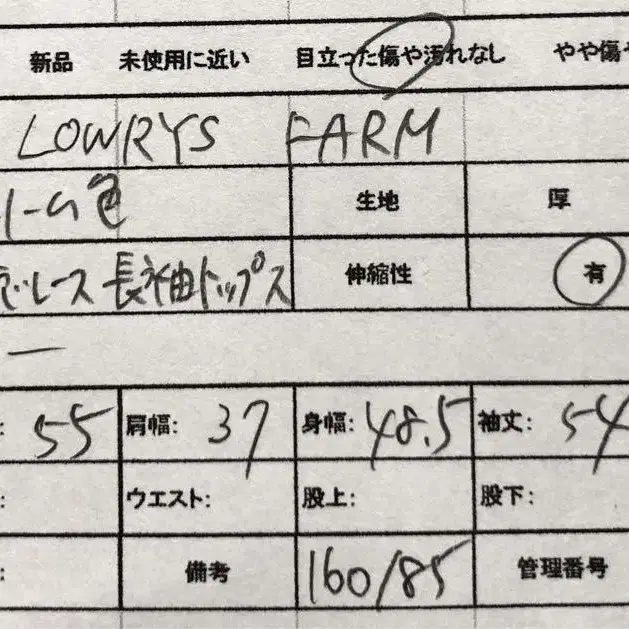 新品 未使用に近い 目立った傷や汚れなし やや傷や
LOWRYS FARM
ーム色 生地 厚
レース 長袖トップス 伸縮性 有
ー
: 55 肩幅: 37 身幅: 48.5 袖丈: 54
: ウエスト: 股上: 股下:
: 備考 160/85 管理番号